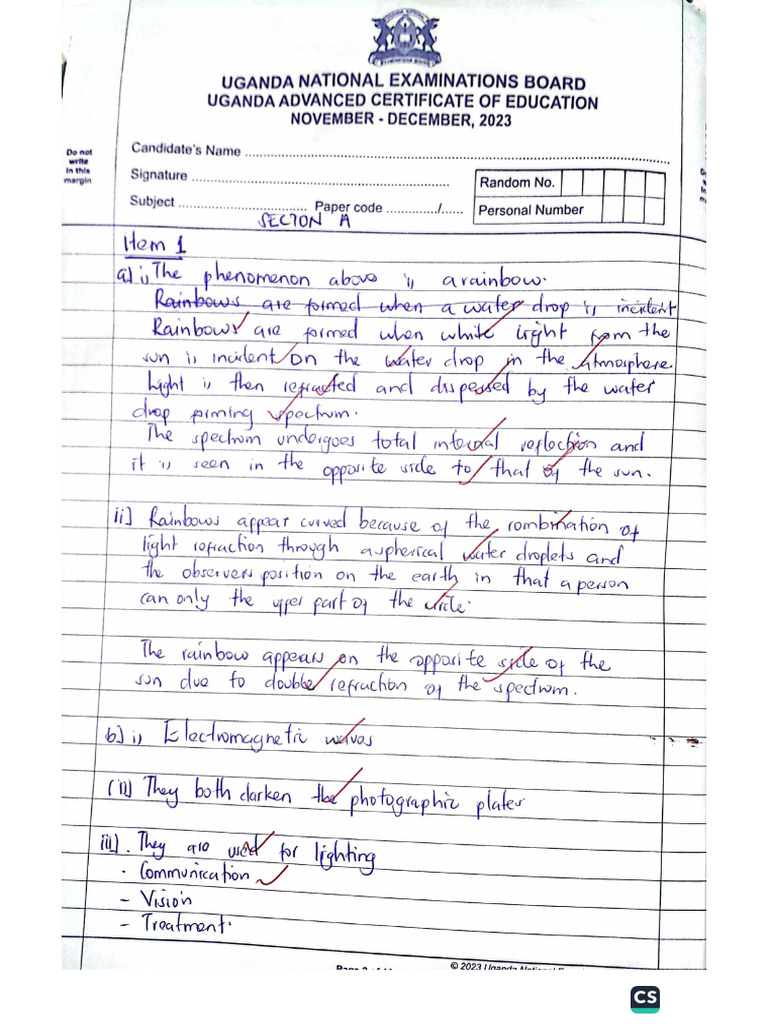 UGANDA NATIONAL EXAMINATIONS BOARD
UGANDA ADVANCED CERTIFICATE OF EDUCATION
NOVEMBER - DECEMBER, 2023
Do not
write
in this
margin
Candidate's Name
Signature
Random No.
Subject
Paper code ............/......
Personal Number
SECTON A
Item 1
a) i, The phenomenon above is a rainbow.
Rainbows are formed when a water drop is incident
Rainbows are formed when white light from the
sun is incident on the water drop in the atmosphere.
Light is then refracted and dispessed by the water
drop forming spectrum.
The spectrum undergoes total internal reflection and
it is seen in the opposite side to that of the sun.
ii] Rainbows appear curved because of the combination of
light refraction through a spherical water droplets and
the observers position on the earth in that a person
can only the upper part of the circle.
The rainbow appears on the opposite side of the
sun due to double refraction of the spectrum.
b] i, Electromagnetic waves
(ii) They both darken the photographic plates
iii]. They are used for lighting
· Communication
- Vision
- Treatment.
© 2023 Uganda
CS